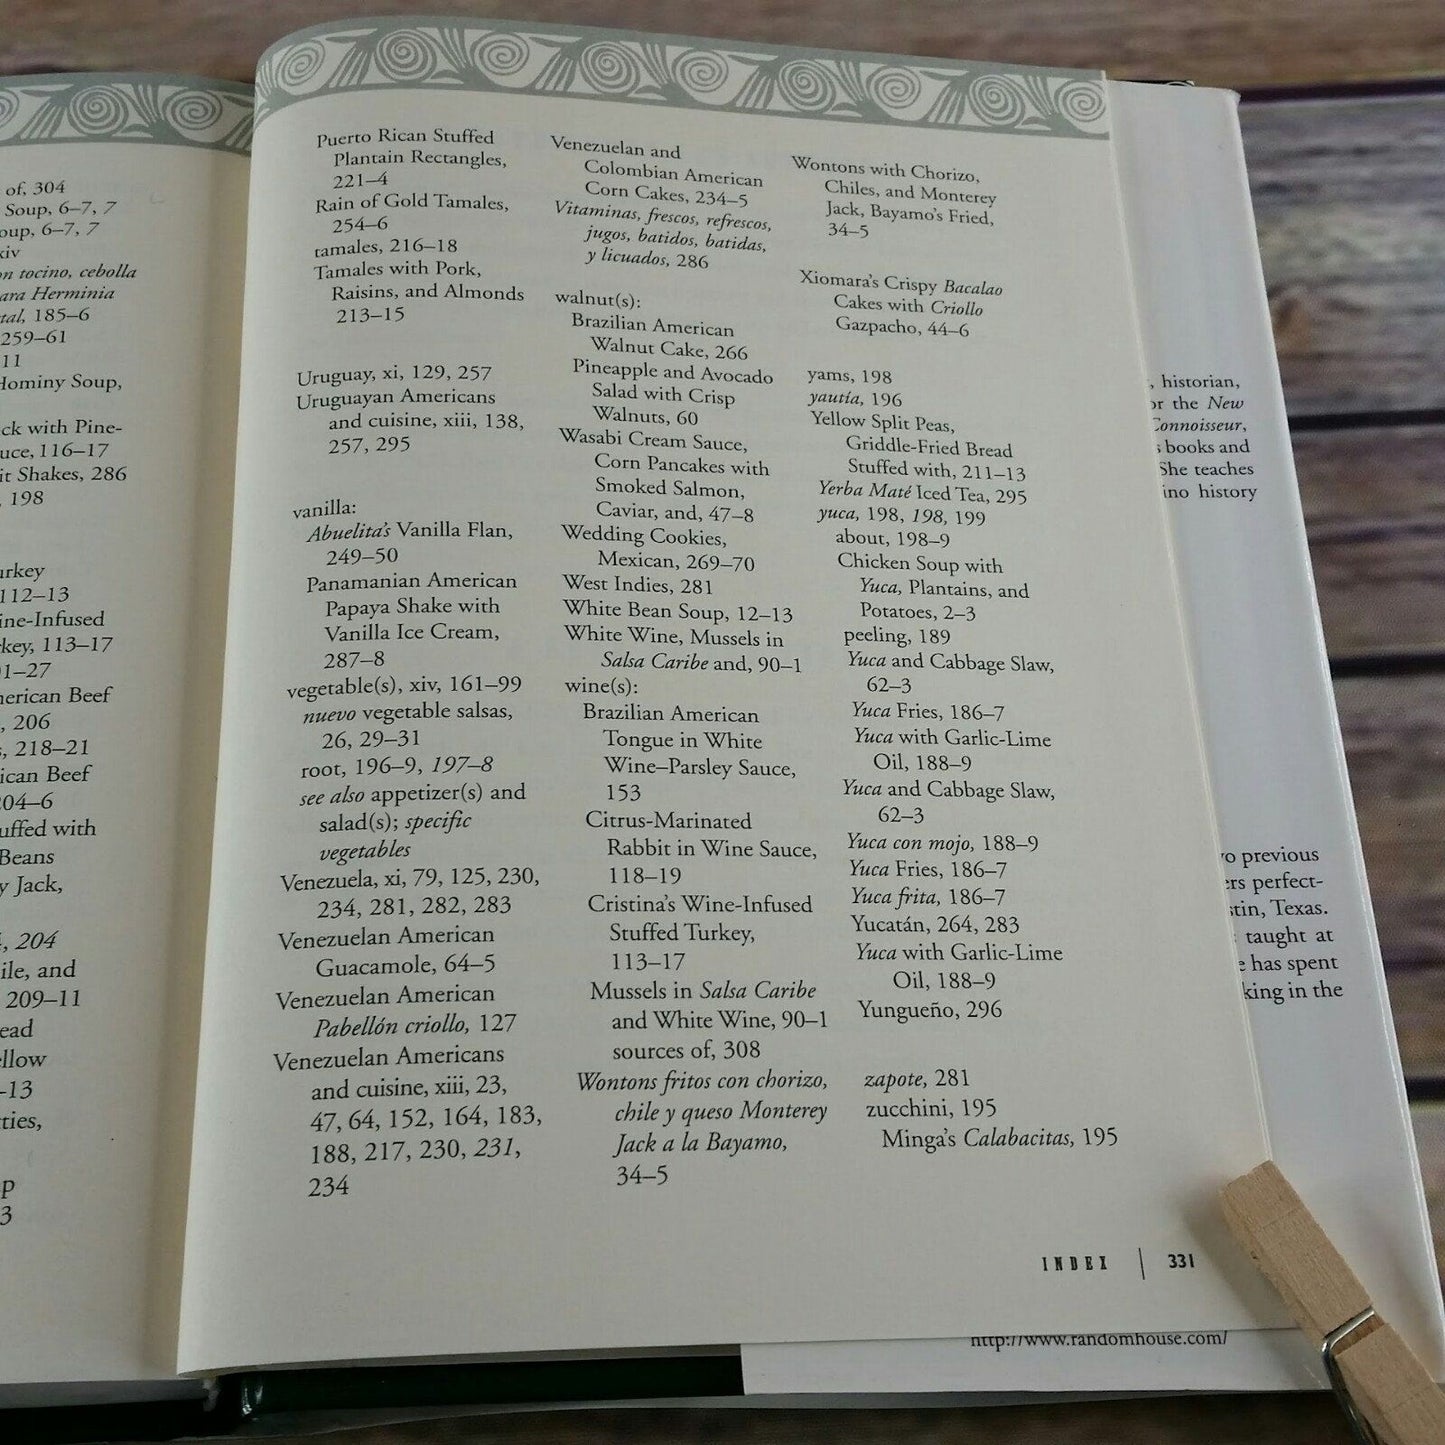 of, 304
Soup, 6–7, 7
oup, 6–7, 7
xiv
on tocino, cebolla
ara Herminia
tal, 185–6
259–61
11
Hominy Soup,
ck with Pine-
uce, 116–17
it Shakes, 286
, 198
urkey
112–13
ine-Infused
rkey, 113–17
01–27
merican Beef
, 206
s, 218–21
ican Beef
204–6
uffed with
Beans
y Jack,
, 204
ile, and
209–11
ead
ellow
–13
tties,
p
3
Puerto Rican Stuffed
Plantain Rectangles,
221–4
Rain of Gold Tamales,
254–6
tamales, 216–18
Tamales with Pork,
Raisins, and Almonds
213–15
Uruguay, xi, 129, 257
Uruguayan Americans
and cuisine, xiii, 138,
257, 295
vanilla:
Abuelita's Vanilla Flan,
249–50
Panamanian American
Papaya Shake with
Vanilla Ice Cream,
287–8
vegetable(s), xiv, 161–99
nuevo vegetable salsas,
26, 29–31
root, 196–9, 197–8
see also appetizer(s) and
salad(s); specific
vegetables
Venezuela, xi, 79, 125, 230,
234, 281, 282, 283
Venezuelan American
Guacamole, 64–5
Venezuelan American
Pabellón criollo, 127
Venezuelan Americans
and cuisine, xiii, 23,
47, 64, 152, 164, 183,
188, 217, 230, 231,
234
Venezuelan and
Colombian American
Corn Cakes, 234–5
Vitaminas, frescos, refrescos,
jugos, batidos, batidas,
y licuados, 286
walnut(s):
Brazilian American
Walnut Cake, 266
Pineapple and Avocado
Salad with Crisp
Walnuts, 60
Wasabi Cream Sauce,
Corn Pancakes with
Smoked Salmon,
Caviar, and, 47–8
Wedding Cookies,
Mexican, 269–70
West Indies, 281
White Bean Soup, 12–13
White Wine, Mussels in
Salsa Caribe and, 90–1
wine(s):
Brazilian American
Tongue in White
Wine–Parsley Sauce,
153
Citrus-Marinated
Rabbit in Wine Sauce,
118–19
Cristina's Wine-Infused
Stuffed Turkey,
113–17
Mussels in Salsa Caribe
and White Wine, 90–1
sources of, 308
Wontons fritos con chorizo,
chile y queso Monterey
Jack a la Bayamo,
34–5
Wontons with Chorizo,
Chiles, and Monterey
Jack, Bayamo's Fried,
34–5
Xiomara's Crispy Bacalao
Cakes with Criollo
Gazpacho, 44–6
yams, 198
yautía, 196
Yellow Split Peas,
Griddle-Fried Bread
Stuffed with, 211–13
Yerba Maté Iced Tea, 295
yuca, 198, 198, 199
about, 198–9
Chicken Soup with
Yuca, Plantains, and
Potatoes, 2–3
peeling, 189
Yuca and Cabbage Slaw,
62–3
Yuca Fries, 186–7
Yuca with Garlic-Lime
Oil, 188–9
Yuca and Cabbage Slaw,
62–3
Yuca con mojo, 188–9
Yuca Fries, 186–7
Yuca frita, 186–7
Yucatán, 264, 283
Yuca with Garlic-Lime
Oil, 188–9
Yungueño, 296
zapote, 281
zucchini, 195
Minga's Calabacitas, 195
INDEX | 331
, historian,
or the New
Connoisseur,
s books and
She teaches
ino history
vo previous
ers perfect-
stin, Texas.
taught at
e has spent
king in the
http://www.randomhouse.com/